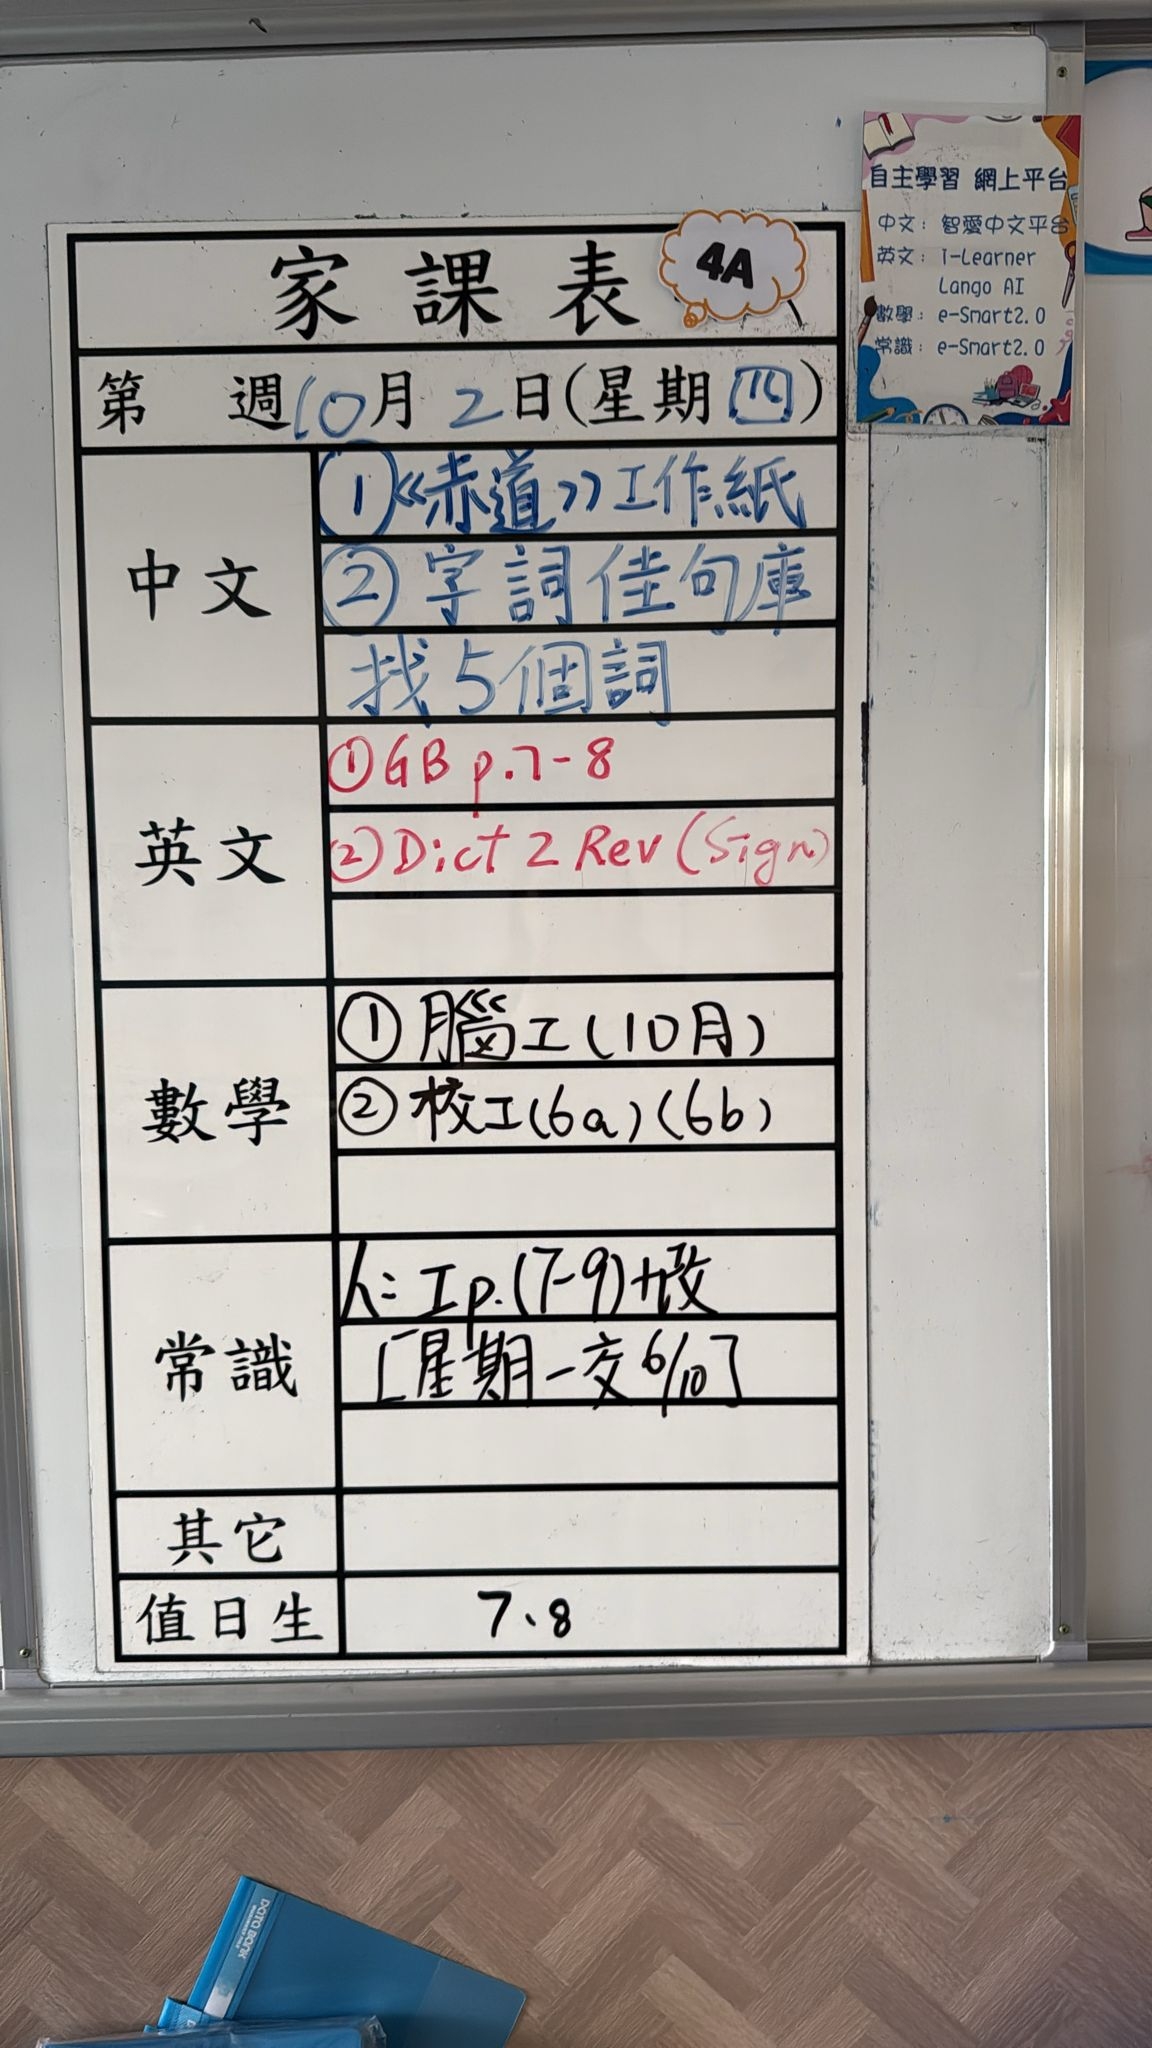 家課表
4A
第 週10月2日(星期四)
中文
①《赤道》工作紙
②字詞佳句庫
找5個詞
英文
①GB p.7-8
②Dict 2 Rev (Sign)
數學
①腦工(10月)
②校工(6a)(6b)
常識
人:工p.(7-9)+改
[星期一交6/10]
其它
值日生
7、8
自主學習 網上平台
中文: 智愛中文平台
英文: i-Learner
Lango AI
數學: e-Smart2.0
常識: e-Smart2.0
DATA BANK